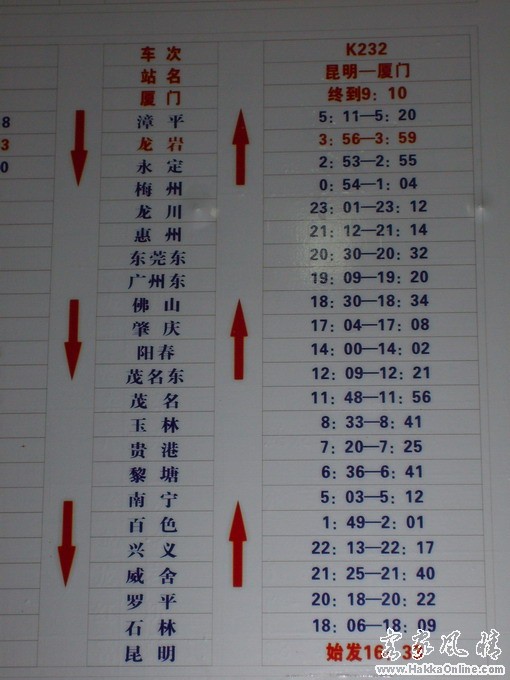 车次 K232
站名 昆明—厦门
厦门 终到9：10
8 漳平 5：11—5：20
3 龙岩 3：56—3：59
0 永定 2：53—2：55
梅州 0：54—1：04
龙川 23：01—23：12
惠州 21：12—21：14
东莞东 20：30—20：32
广州东 19：09—19：20
佛山 18：30—18：34
肇庆 17：04—17：08
阳春 14：00—14：02
茂名东 12：09—12：21
茂名 11：48—11：56
玉林 8：33—8：41
贵港 7：20—7：25
黎塘 6：36—6：41
南宁 5：03—5：12
百色 1：49—2：01
兴义 22：13—22：17
威舍 21：25—21：40
罗平 20：18—20：22
石林 18：06—18：09
昆明 始发16：30
客家风情
www.HakkaOnline.com